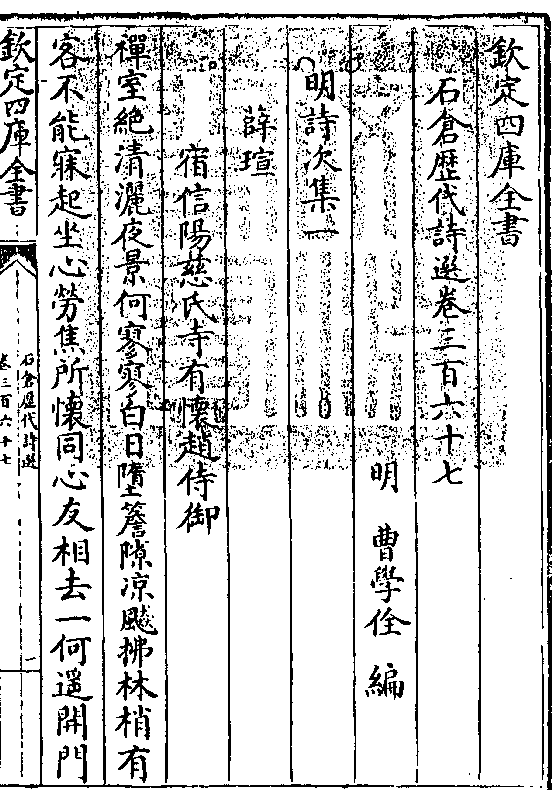 欽定四庫全書
石倉歴代詩選卷三百六十七
明 曹學佺 編
明詩次集一
薛瑄
宿信陽慈氏寺有懷趙侍御
禪室絶清灑夜景何寥寥白日墮簷隙凉飈拂林梢有
客不能寐起坐心勞焦所懷同心友相去一何遥開門
欽定四庫全書
石倉歴代詩選
卷三百六十七
一